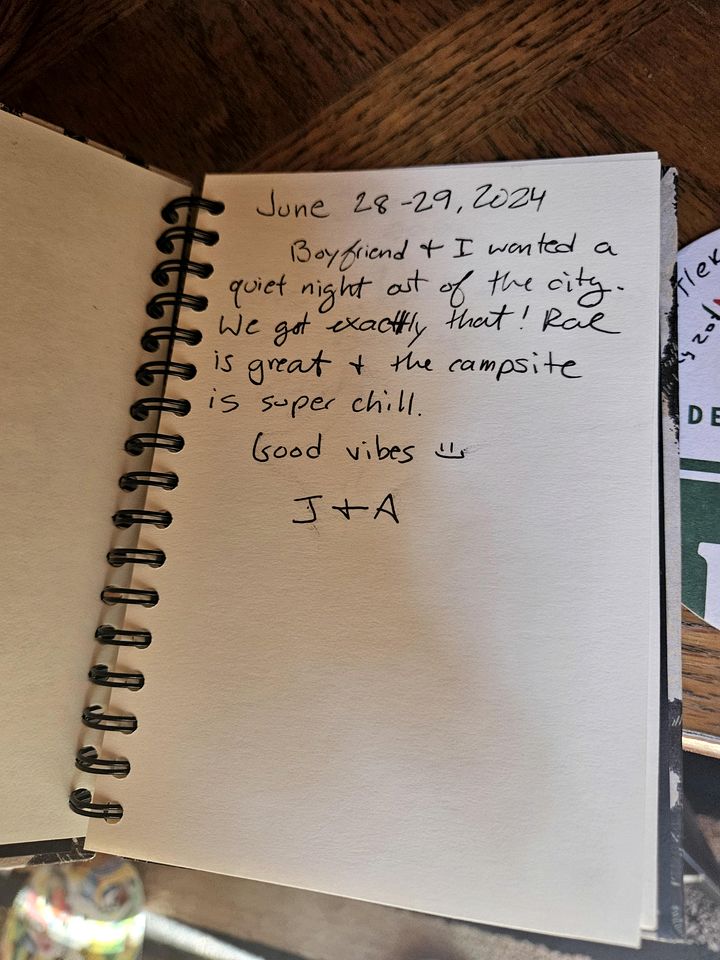 June 28-29, 2024
Boyfriend + I wanted a
quiet night out of the city.
We got exactly that! Rae
is great + the campsite
is super chill.
Good vibes
J + A
DE